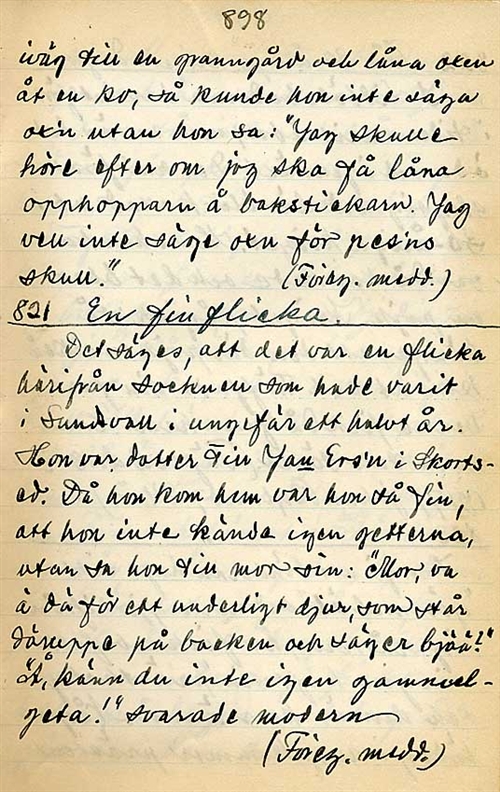 898
iväg till en granngård och låna oxen
åt en ko, så kunde hon inte säga
ox'n utan hon sa: "Jag skulle
höre efter om jog ska få låna
opphopparn å bakstickarn. Jag
vell inte säge oxn för pes'ns
skull." (Föreg. medd.)
821 En fin flicka.
Det säges, att det var en flicka
härifrån socknen som hade varit
i Sundsvall i ungefär ett halvt år.
Hon var dotter till Jan Ers'n i Skorts-
ed. Då hon kom hem var hon så fin,
att hon inte kände igen getterna,
utan sa hon till mor sin: "Mor, va
ä dä för ett underligt djur, som står
däruppe på backen och säger bjää!"
"Å, känn du inte igen gammel-
geta!" svarade modern
(Föreg. medd.)